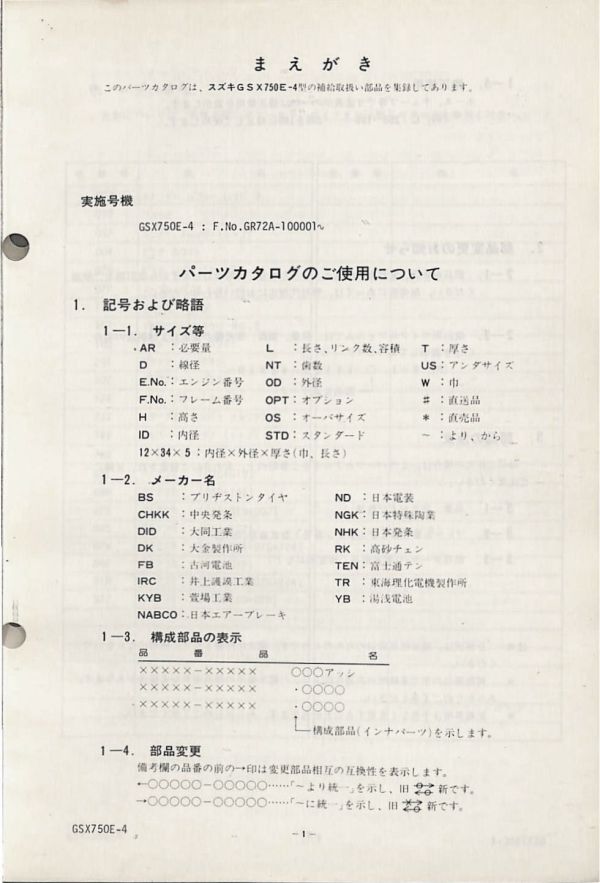 まえがき
このパーツカタログは、スズキGSX750E-4型の補給取扱い部品を集録してあります。
実施号機
GSX750E-4 : F.No.GR72A-100001~
パーツカタログのご使用について
1. 記号および略語
1―1. サイズ等
AR :必要量 L :長さ、リンク数、容積 T :厚さ
D :線径 NT :歯数 US:アンダサイズ
E.No.:エンジン番号 OD :外径 W :巾
F.No.:フレーム番号 OPT:オプション # :直送品
H :高さ OS :オーバサイズ * :直売品
ID :内径 STD:スタンダード ~ :より、から
12×34×5:内径×外径×厚さ(巾、長さ)
1―2. メーカー名
BS :ブリヂストンタイヤ ND :日本電装
CHKK :中央発条 NGK:日本特殊陶業
DID :大同工業 NHK:日本発条
DK :大金製作所 RK :高砂チェン
FB :古河電池 TEN:富士通テン
IRC :井上護謨工業 TR :東海理化電機製作所
KYB :萱場工業 YB :湯浅電池
NABCO:日本エアーブレーキ
1―3. 構成部品の表示
品 番 品 名
×××××-××××× ○○○アッシ
×××××-××××× ・○○○○
×××××-××××× ・○○○○
構成部品(インナパーツ)を示します。
1―4. 部品変更
備考欄の品番の前の→印は変更部品相互の互換性を表示します。
←○○○○○-○○○○○……「~より統一」を示し、旧 新です。
→○○○○○-○○○○○……「~に統一」を示し、旧 新です。
GSX750E-4
-1-